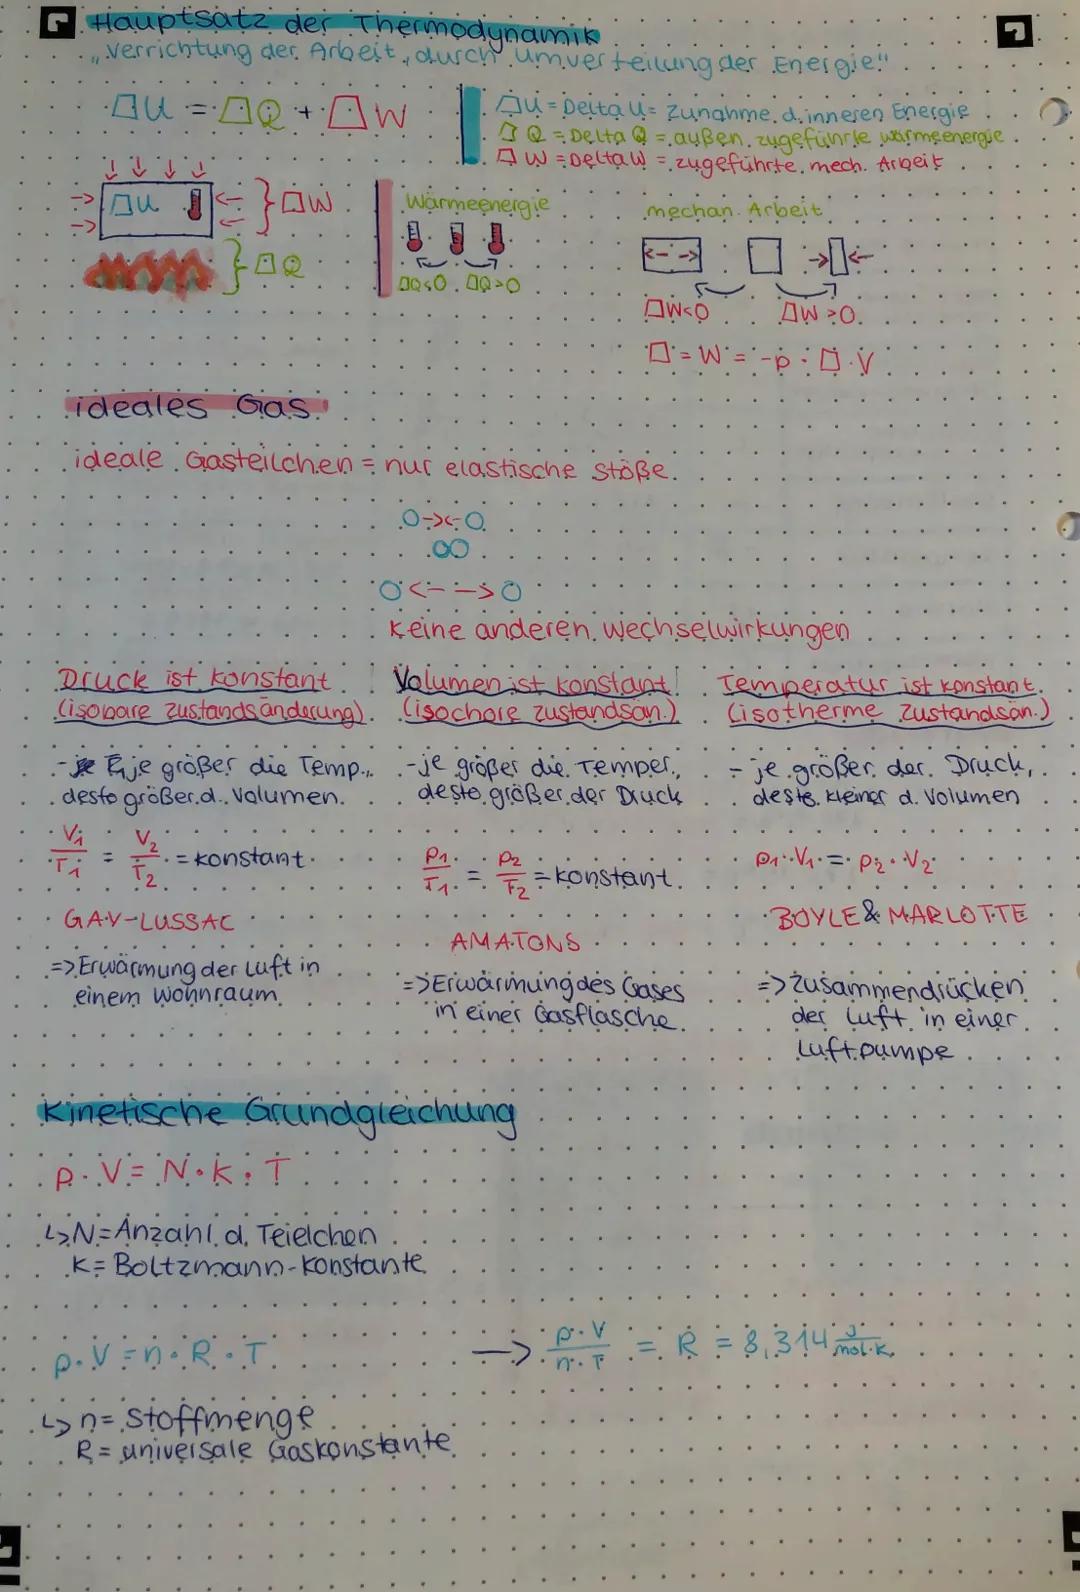 Hauptsatz der Thermodynamik
„Verrichtung der Arbeit, durch Umverteilung der Energie"
ΔU = ΔQ + ΔW
ΔU = Delta U = Zunahme d. inneren Energie
ΔQ = Delta Q = außen zugeführte wärmeenergie
ΔW = Delta W = zugeführte mech. Arbeit
ΔU
ΔW
ΔQ
Wärmeenergie
ΔQ<0 ΔQ>0
mechan. Arbeit
ΔW<0 ΔW>0
Δ = W = -p · Δ V
ideales Gas
ideale Gasteilchen = nur elastische Stöße
keine anderen Wechselwirkungen
Druck ist konstant
(isobare Zustandsänderung)
- je größer die Temp.,
desto größer d. Volumen.
V1/T1 = V2/T2 = konstant
GAY-LUSSAC
=> Erwärmung der Luft in
einem Wohnraum
Volumen ist konstant
(isochore Zustandsän.)
- je größer die Temper.,
desto größer der Druck
p1/T1 = p2/T2 = konstant
AMATONS
=> Erwärmung des Gases
in einer Gasflasche
Temperatur ist konstant
(isotherme Zustandsän.)
- je größer der Druck,
desto kleiner d. Volumen
p1 · V1 = p2 · V2
BOYLE & MARLOTTE
=> Zusammendrücken
der Luft in einer
Luftpumpe
Kinetische Grundgleichung
p · V = N · k · T
↳ N = Anzahl d. Teielchen
k = Boltzmann-Konstante
p · V = n · R · T
—> p · V / n · T = R = 8,314 J/mol·K
↳ n = Stoffmenge
R = universale Gaskonstante